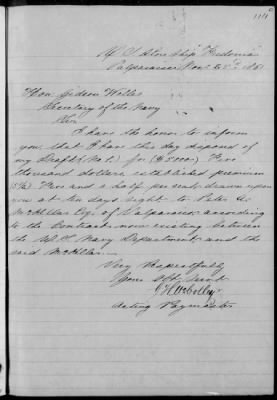 U.S. Store Ship Fredonia
Valparaiso Nov. 25th
Hon. Gideon Welles
Secretary of the Navy
Sir
I have the honor to inform
you that I have this day disposed of
my Draft (No 1.) for
thousand dollars established premium
and a half per cent, drawn upon
you at ten days sight to
Esq. of Valparaiso according
to the Contract now existing between
the U.S. Navy Department and the
said
Very Respectfully
Your Obt. Servt
Acting Paymaster